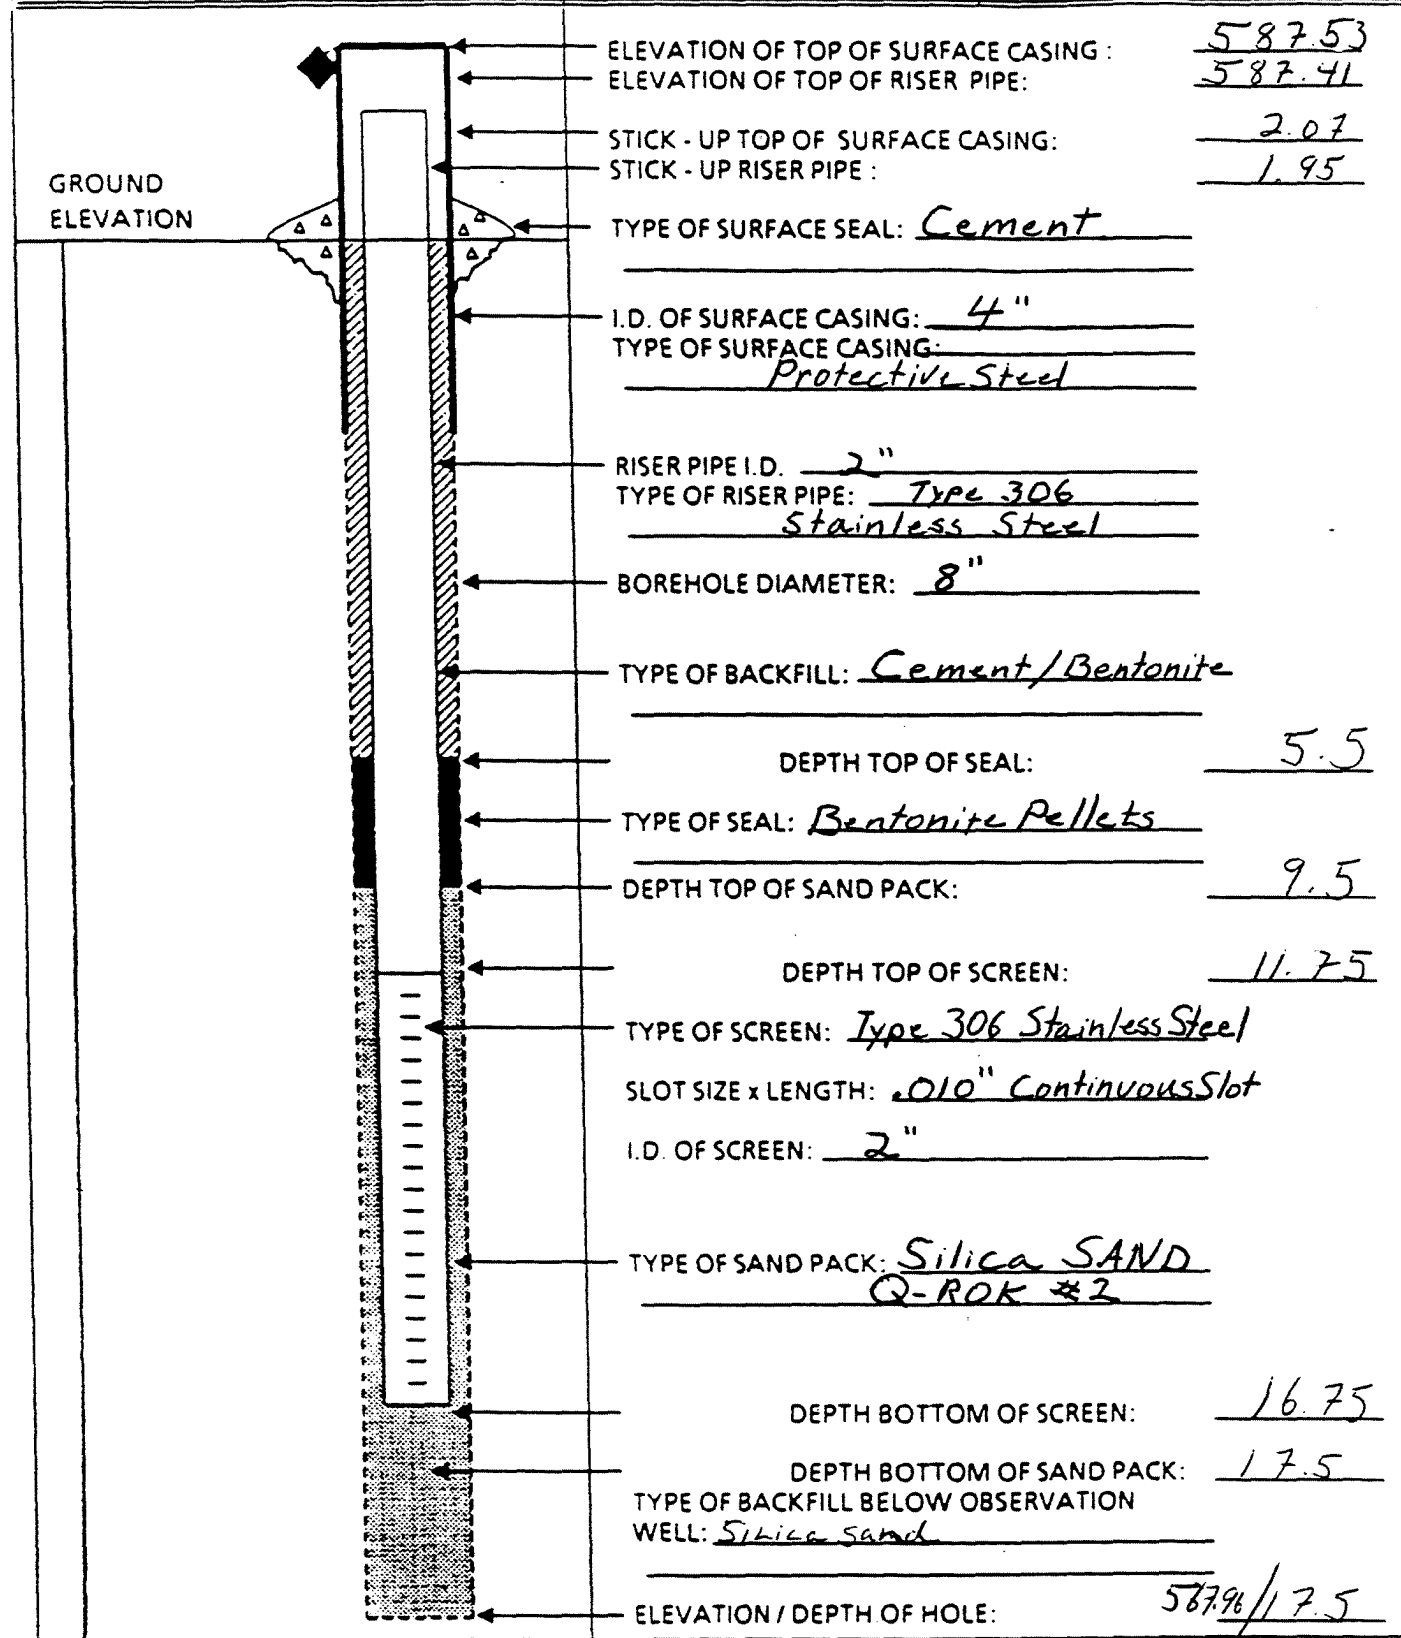 ELEVATION OF TOP OF SURFACE CASING : 587.53
ELEVATION OF TOP OF RISER PIPE: 587.41
STICK - UP TOP OF SURFACE CASING: 2.07
STICK - UP RISER PIPE : 1.95
GROUND
ELEVATION
TYPE OF SURFACE SEAL: Cement
I.D. OF SURFACE CASING: 4"
TYPE OF SURFACE CASING:
Protective Steel
RISER PIPE I.D. 2"
TYPE OF RISER PIPE: Type 306
Stainless Steel
BOREHOLE DIAMETER: 8"
TYPE OF BACKFILL: Cement/Bentonite
DEPTH TOP OF SEAL: 5.5
TYPE OF SEAL: Bentonite Pellets
DEPTH TOP OF SAND PACK: 9.5
DEPTH TOP OF SCREEN: 11.75
TYPE OF SCREEN: Type 306 Stainless Steel
SLOT SIZE x LENGTH: .010" Continuous Slot
I.D. OF SCREEN: 2"
TYPE OF SAND PACK: Silica SAND
Q-ROK #2
DEPTH BOTTOM OF SCREEN: 16.75
DEPTH BOTTOM OF SAND PACK: 17.5
TYPE OF BACKFILL BELOW OBSERVATION
WELL: Silica sand
ELEVATION / DEPTH OF HOLE: 567.96/17.5